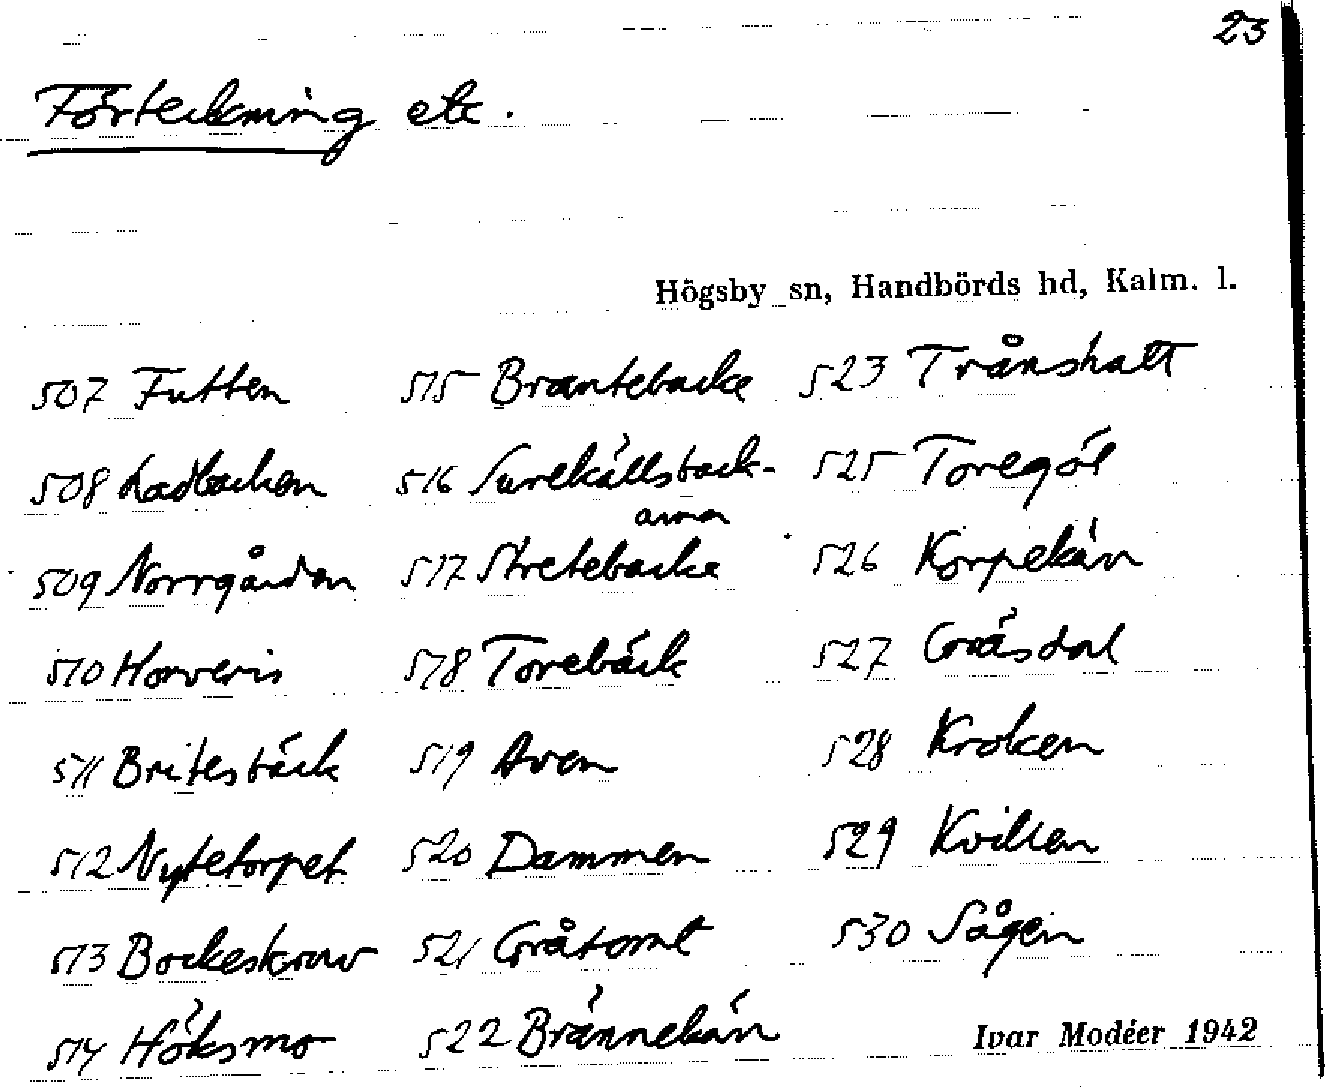 23
Förteckning etc.
Högsby sn, Handbörds hd, Kalm. l.
507 Futten 515 Brantebacke 523 Trånshatt
508 Ladbacken 516 Surekällsback-
arna 525 Toregöl
509 Norrgården 517 Stretebacke 526 Korpekärr
510 Horveris 518 Torebäck 527 Gräsdal
511 Britesbäck 519 Aven 528 Kroken
512 Nytetorpet 520 Dammen 529 Kvillen
513 Bockeskruv 521 Gråtomt 530 Sågen
514 Höksmo 522 Brännekärr
Ivar Modéer 1942